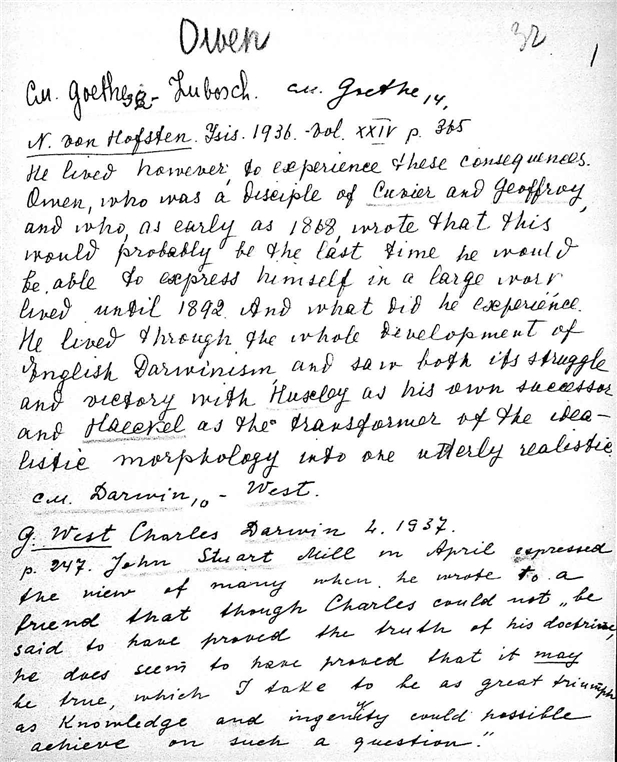 Owen
32 1
см. Goethe32 - Lubosch. см. Goethe14.
N. von Hofsten. Isis. 1936. Vol. XXIV p. 365
He lived however, to experience these consequences.
Owen, who was a disciple of Cuvier and Geoffroy,
and who, as early as 1868, wrote that this
would probably be the last time he would
be able to express himself in a large work
lived until 1892. And what did he experience.
He lived through the whole development of
English Darwinism and saw both its struggle
and victory with Huxley as his own successor
and Haeckel as the transformer of the idea-
listic morphology into one utterly realistic.
см. Darwin10 - West.
G. West Charles Darwin L. 1937.
p. 247. John Stuart Mill in April expressed
the view of many when he wrote to a
friend that though Charles could not „be
said to have proved the truth of his doctrine,
he does seem to have proved that it may
be true, which I take to be as great triumph
as knowledge and ingenuity could possible
achieve on such a question."